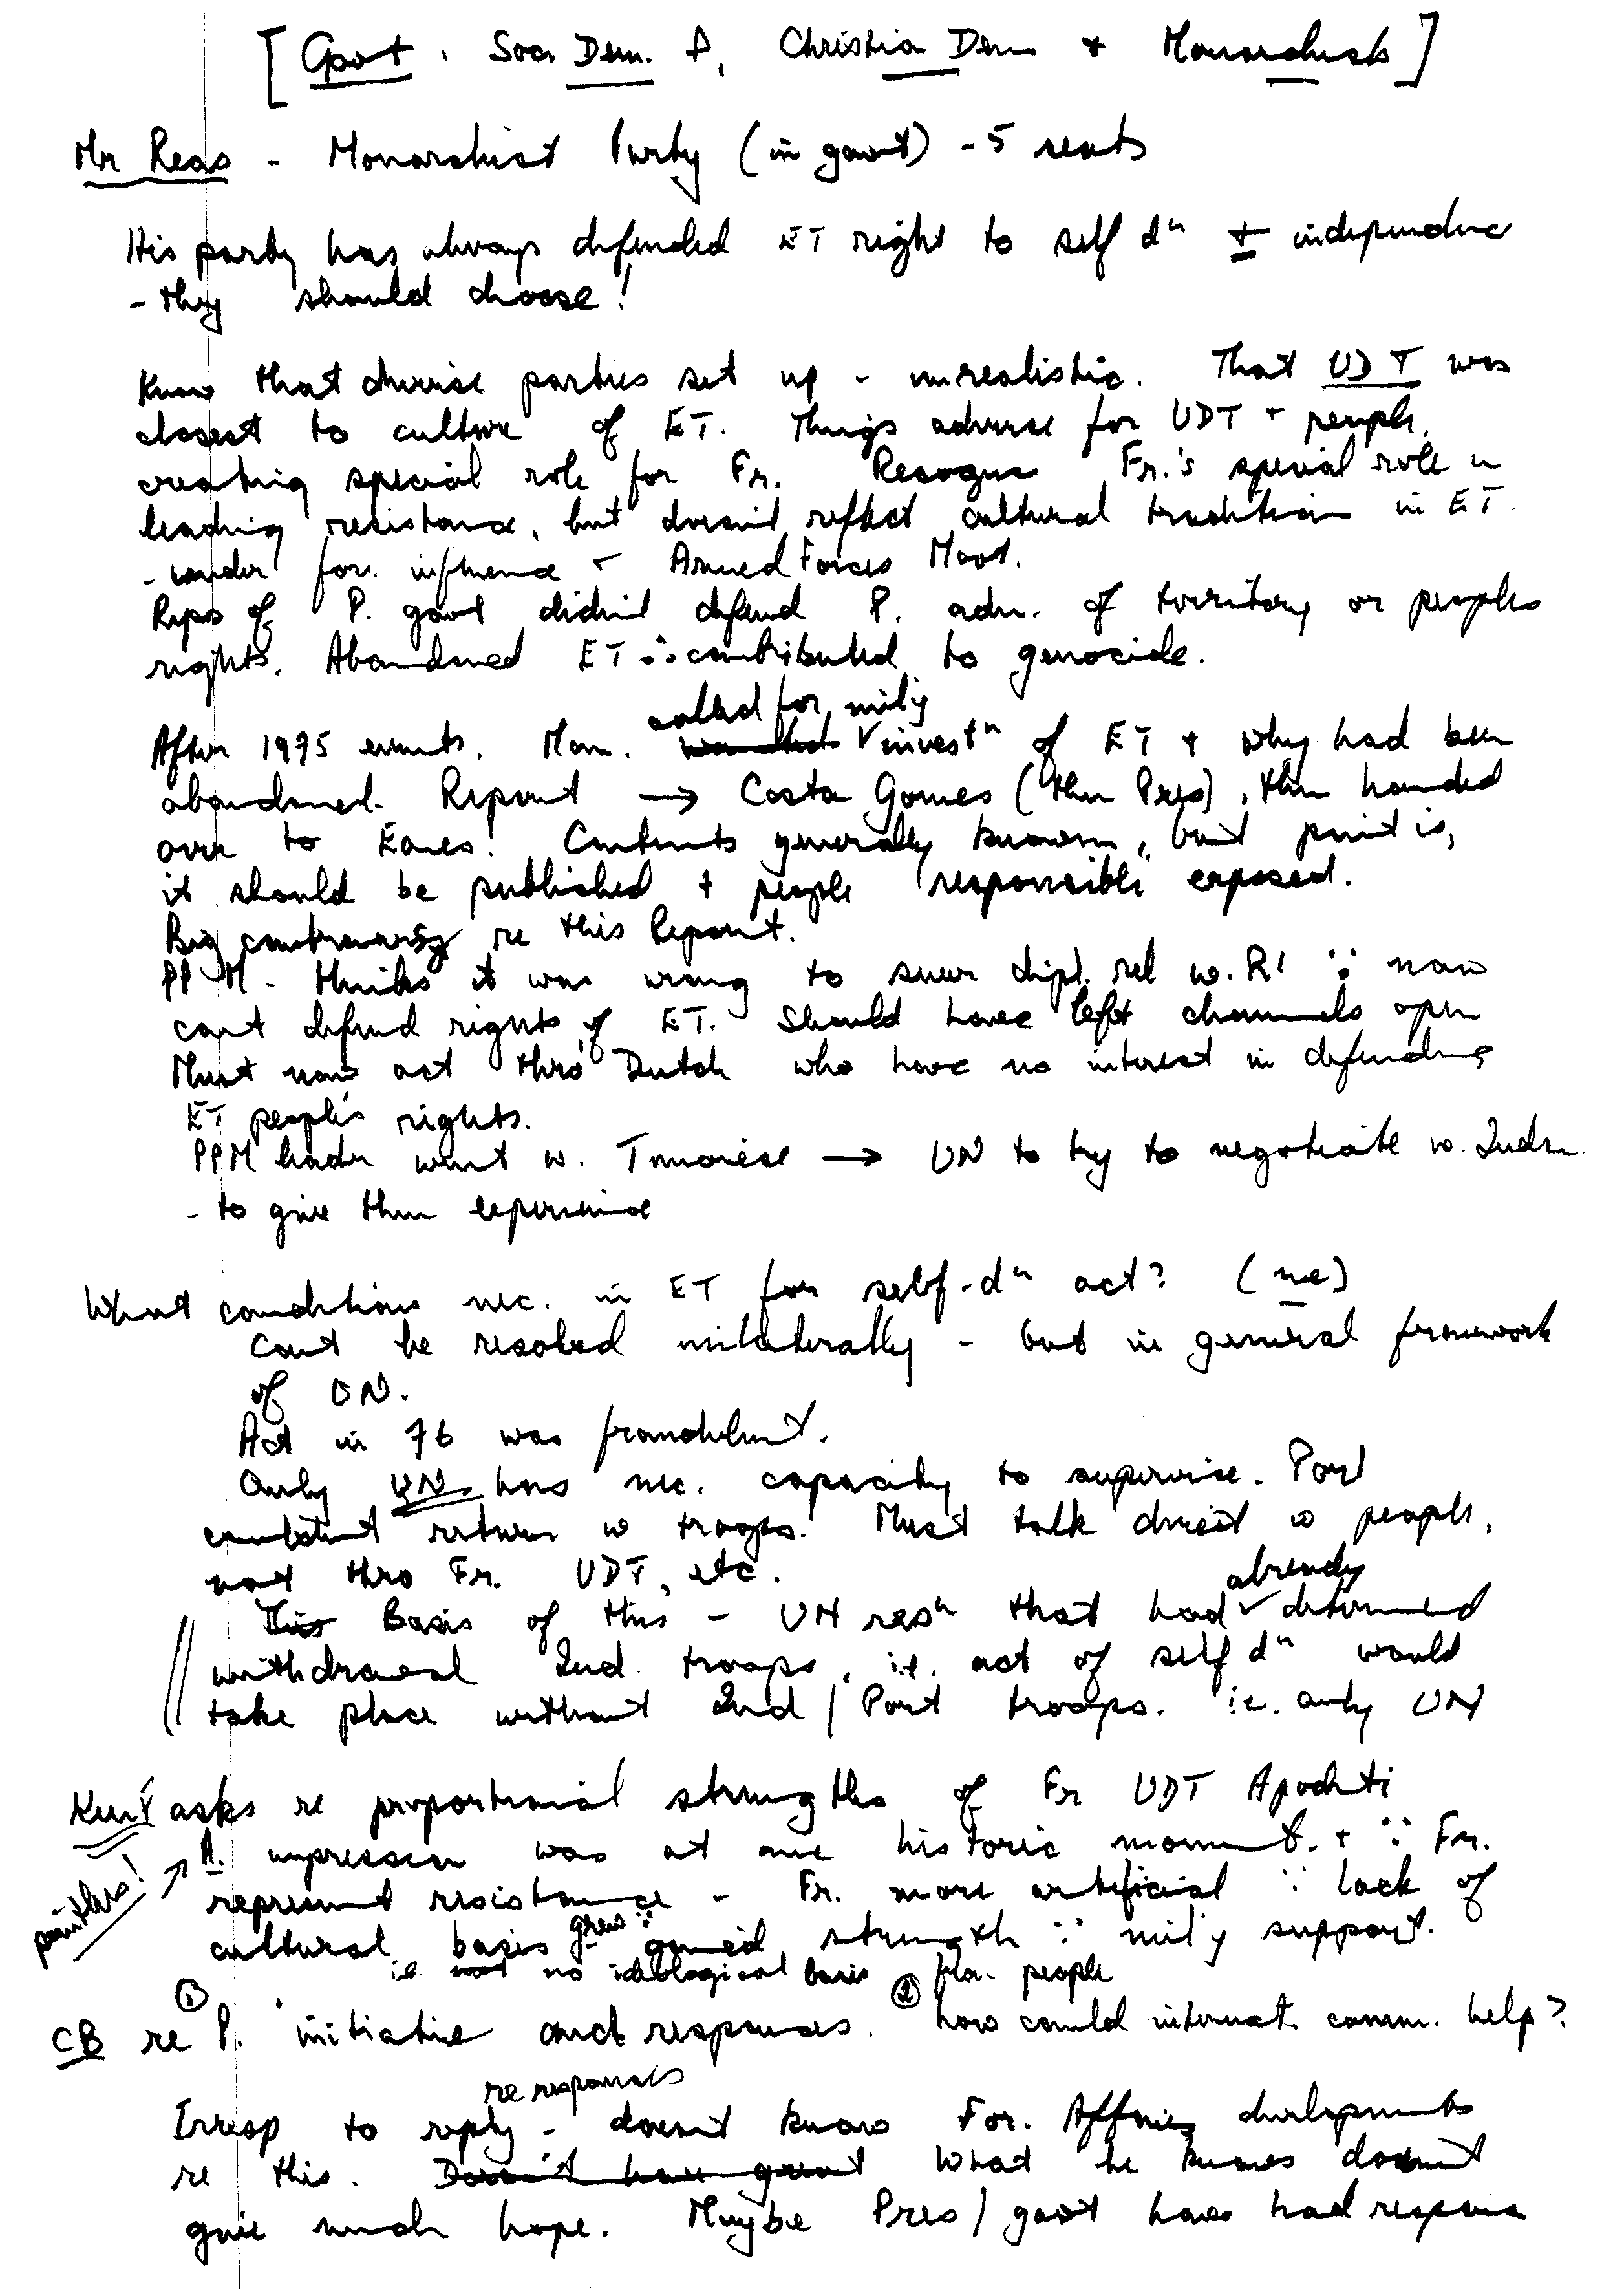 [Govt. Soc. Dem. P, Christia Dem + Monarchists]
Mr Reas - Monarchist Party (in govt) - 5 seats
His party has always defended ET right to self dⁿ + independence
- they should choose!
Know that diverse parties set up - unrealistic. That UDT was
closest to culture of ET. Things adverse for UDT + people,
creating special role for Fr. Recognise Fr.'s special role in
leading resistance, but doesn't reflect cultural tradition in ET
- under for. influence - Armed Forces Movt.
Reps of P. govt didn't defend P. adm. of territory or peoples
rights. Abandoned ET ∴ contributed to genocide.
called for mil'y
After 1975 events, Mon. wanted √ investⁿ of ET + why had been
abandoned. Report → Costa Gomes (then Pres), then handed
over to Eanes! Contents generally known, but point is,
it should be published + people "responsible" exposed.
Big controversy re this Report.
PPM - thinks it was wrong to sever dipl. rel w. RI ∵ now
can't defend rights of ET. Should have left channels open
Must now act thro' Dutch who have no interest in defending
ET people's rights.
PPM leader went w. Timorese → UN to try to negotiate w. Indon
- to give them experience
What conditions nec. in ET for self-dⁿ act? (me)
Can't be resolved unilaterally - but in general framework
of UN.
Act in 76 was fraudulent.
Only UN has nec. capacity to supervise. Port
couldn't return w troops. Must talk direct w people,
not thro Fr. UDT, etc.
already
This Basis of this - UN resⁿ that had √ determined
withdrawal Ind. troops, i.e. act of self dⁿ would
take place without Ind / Port troops. i.e. only UN
Kurt asks re proportional strengths of Fr UDT Apodeti
A. impression was at one historic moment. + ∵ Fr.
pointless!
represent resistance - Fr. more artificial ∵ lack of
grew ∵
cultural basis gained strength ∵ mil'y support.
i.e. not no ideological basis for people
CB re ① P. initiative and responses. ② how could internat. comm. help?
re responses
Irresp to reply - doesn't know For. Affairs developments
re this. Doesn't have great What he knows doesn't
give much hope. Maybe Pres / govt have had response